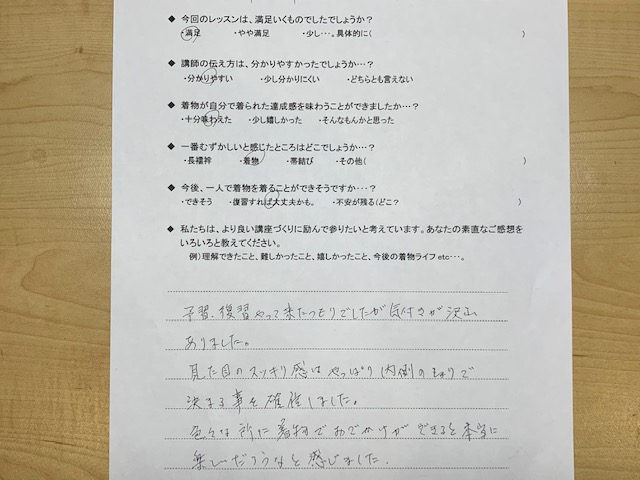 ◆ 今回のレッスンは、満足いくものでしたでしょうか?
・満足 ・やや満足 ・少し・・・。具体的に( )
◆ 講師の伝え方は、分かりやすかったでしょうか…?
・分かりやすい ・少し分かりにくい ・どちらとも言えない
◆ 着物が自分で着られた達成感を味わうことができましたか…?
・十分味わえた ・少し嬉しかった ・そんなもんかと思った
◆ 一番むずかしいと感じたところはどこでしょうか…?
・長襦袢 ・着物 ・帯結び ・その他( )
◆ 今後、一人で着物を着ることができそうですか…?
・できそう ・復習すれば大丈夫かも。 ・不安が残る(どこ? )
◆ 私たちは、より良い講座づくりに励んで参りたいと考えています。あなたの素直なご感想を
いろいろと教えてください。
例)理解できたこと、難しかったこと、嬉しかったこと、今後の着物ライフ etc・・・。
予習、復習やって来たつもりでしたが気付きが沢山
ありました。
見た目のスッキリ感はやっぱり内側の で
決まる事を確信しました。
色々な所に着物でおでかけができると本当に
楽しいだろうなと感じました。